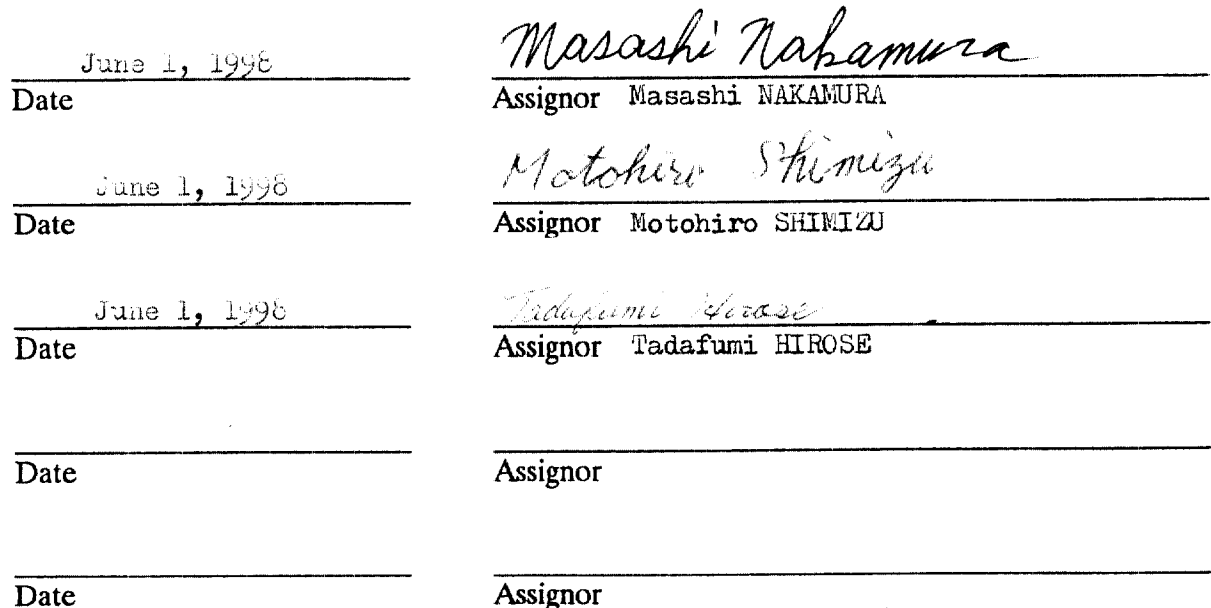 June 1, 1998 Masashi Nakamura
Date Assignor Masashi NAKAMURA
June 1, 1998 Motohiro Shimizu
Date Assignor Motohiro SHIMIZU
June 1, 1998 Tadafumi Hirose
Date Assignor Tadafumi HIROSE
Date Assignor
Date Assignor